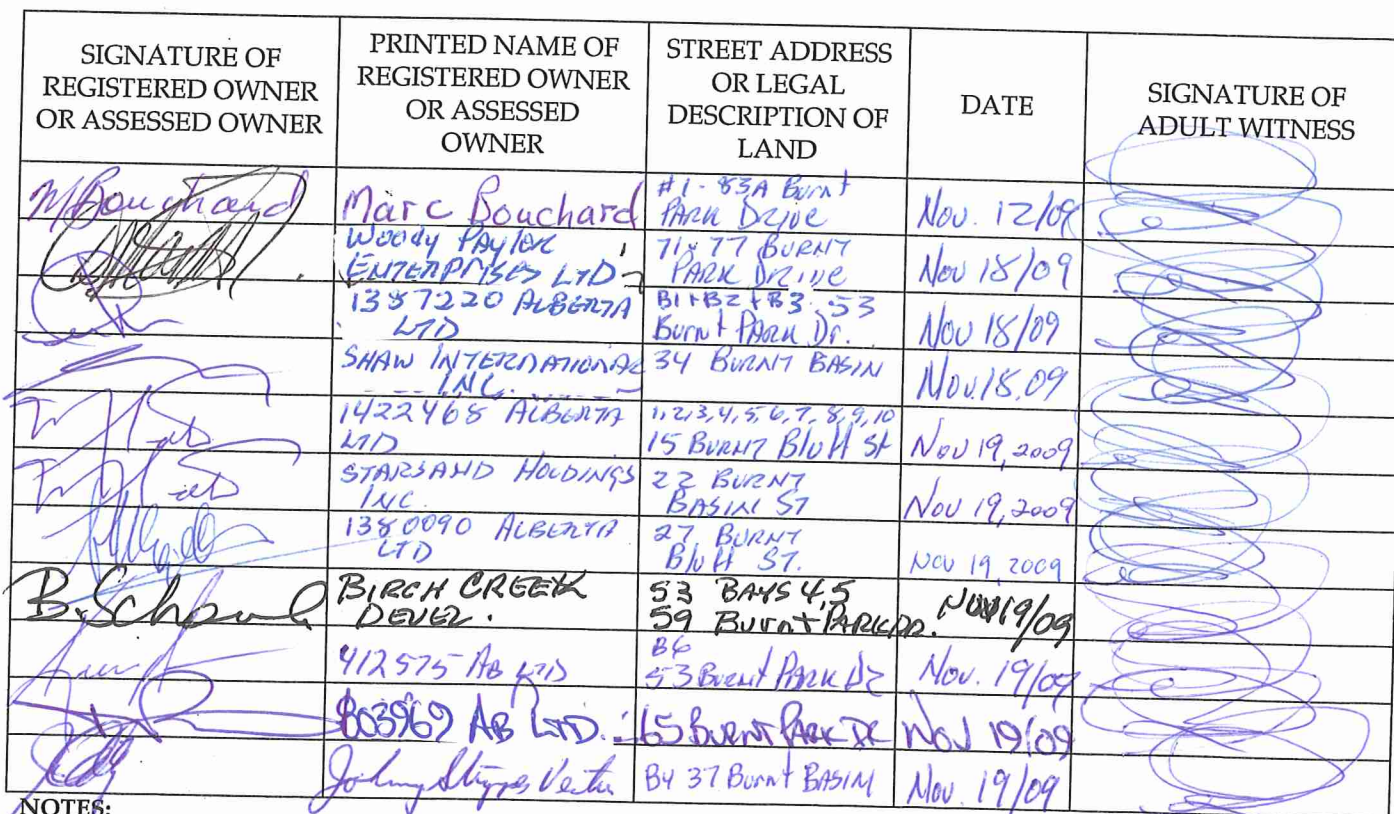 SIGNATURE OF
REGISTERED OWNER
OR ASSESSED OWNER
PRINTED NAME OF
REGISTERED OWNER
OR ASSESSED
OWNER
STREET ADDRESS
OR LEGAL
DESCRIPTION OF
LAND
DATE
SIGNATURE OF
ADULT WITNESS
M Bouchard
Marc Bouchard
#1-83A Burnt
PARK DRIVE
Nov. 12/09
Woody PAYLOR
ENTERPRISES LTD
71 & 77 BURNT
PARK DRIVE
Nov 18/09
1387220 ALBERTA
LTD
B1+B2+B3 53
Burnt PARK Dr.
Nov 18/09
SHAW INTERNATIONAL
INC.
34 BURNT BASIN
Nov.18.09
1422468 ALBERTA
LTD
1,2,3,4,5,6,7,8,9,10
15 BURNT Bluff St
Nov 19, 2009
STARSAND HOLDINGS
INC.
22 BURNT
BASIN ST
Nov 19, 2009
1380090 ALBERTA
LTD
27 BURNT
Bluff ST.
NOV 19, 2009
B. Scha
BIRCH CREEK
DEVEL.
53 BAYS 4,5
59 BURNT PARK DR.
Nov 19/09
412575 AB LTD
B6
53 Burnt PARK Dr
Nov. 19/09
803969 AB LTD.
65 BURNT PARK DR
Nov 19/09
Johnny
B4 37 Burnt BASIN
Nov. 19/09
NOTES: